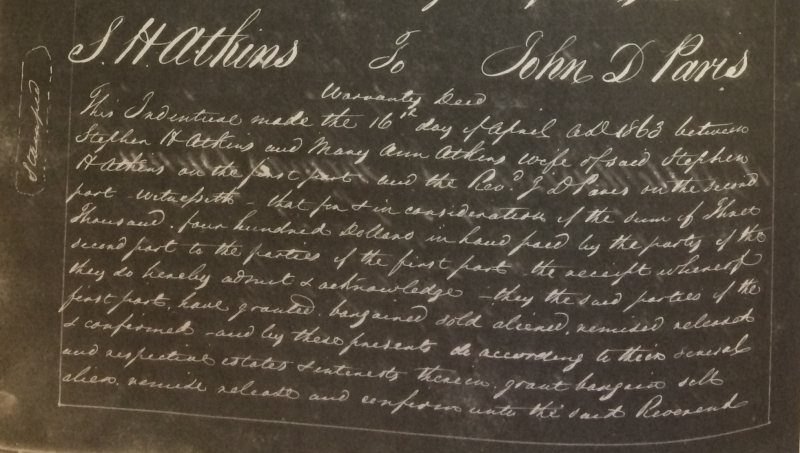 S. H. Atkins To John D Paris
Stamped
Warranty Deed
This Indenture made the 16th day of April AD 1863 between
Stephen H Atkins and Mary Ann Atkins wife of said Stephen
H Atkins on the first part and the Revd J D Paris on the second
part - witnesseth - that for & in consideration of the sum of Three
Thousand, four hundred Dollars in hand paid by the party of the
second part to the parties of the first part the receipt whereof
they do hereby admit & acknowledge - they the said parties of the
first part, have granted, bargained sold aliened, remised released
& confirmed - and by these presents do according to their several
and respective estates & interests therein, grant bargain sell
alien, remise release and confirm unto the said Reverend